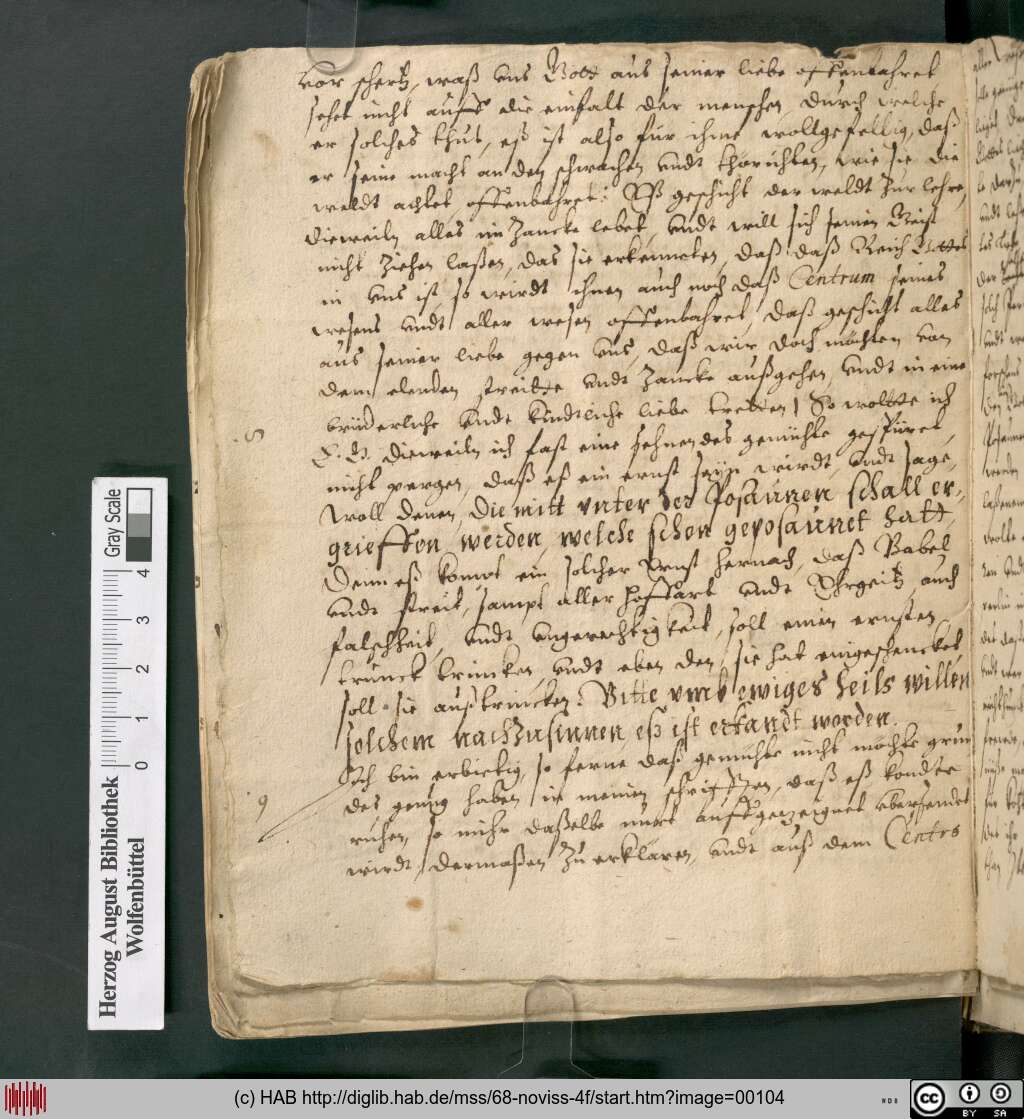 vor schertz, waß uns Gott aus seiner liebe offenbahret
sehet nicht auff die einfalt der menschen, durch welche
er solches thut, eß ist also für ihme wollgefellig, daß
er seine macht an den schwachen undt thörichten, wie sie die
weldt achtet offenbahret: Eß geschicht der weldt zur lehre,
dieweiln alles im Zancke lebet, undt will sich seinen Geist
nicht ziehen laßen, das sie erkenneten, daß daß Reich Gottes
in uns ist, so wirdt ihnen auch noch daß Centrum seines
wesens undt aller wesen offenbahret, daß geschicht alles
aus seiner liebe gegen uns, daß wir doch möchten von
dem elenden streitte undt Zancke außgehen, undt in eine
brüderliche undt kindtliche liebe tretten / So wollte ich
5
E. G. dieweiln ich fast eine sehnendes gemühte gespüret,
nicht pergen, daß eß ein ernst seyn wirdt, undt sage,
Woll denen, die mitt unter der Posaunen schall er-
grieffen werden, welche schon geposaunet hatt,
Denn eß kompt ein solcher Ernst hernach, daß Babel
undt streit, sampt aller hoffart undt Ehrgeitz, auch
falschheit, undt ungerechtigkeit, soll einen ernsten
trunck trincken, undt eben den, sie hat eingeschencket
soll sie außtrincken: Bitte umb ewiges heils willen
solchem nachzusinnen, eß ist erkandt worden.
9
Ich bin erbietig, so ferne daß gemühte nicht möchte grun
des genug haben in meinen schrifften, daß eß kondte
ruhen, so mihr daßelbe nurt auffgezeignet ubersendet
wirdt, dermaßen zu erklären, undt auß dem Centro
Gray Scale
0 1 2 3 4
Herzog August Bibliothek
Wolfenbüttel
(c) HAB http://diglib.hab.de/mss/68-noviss-4f/start.htm?image=00104
cc BY SA